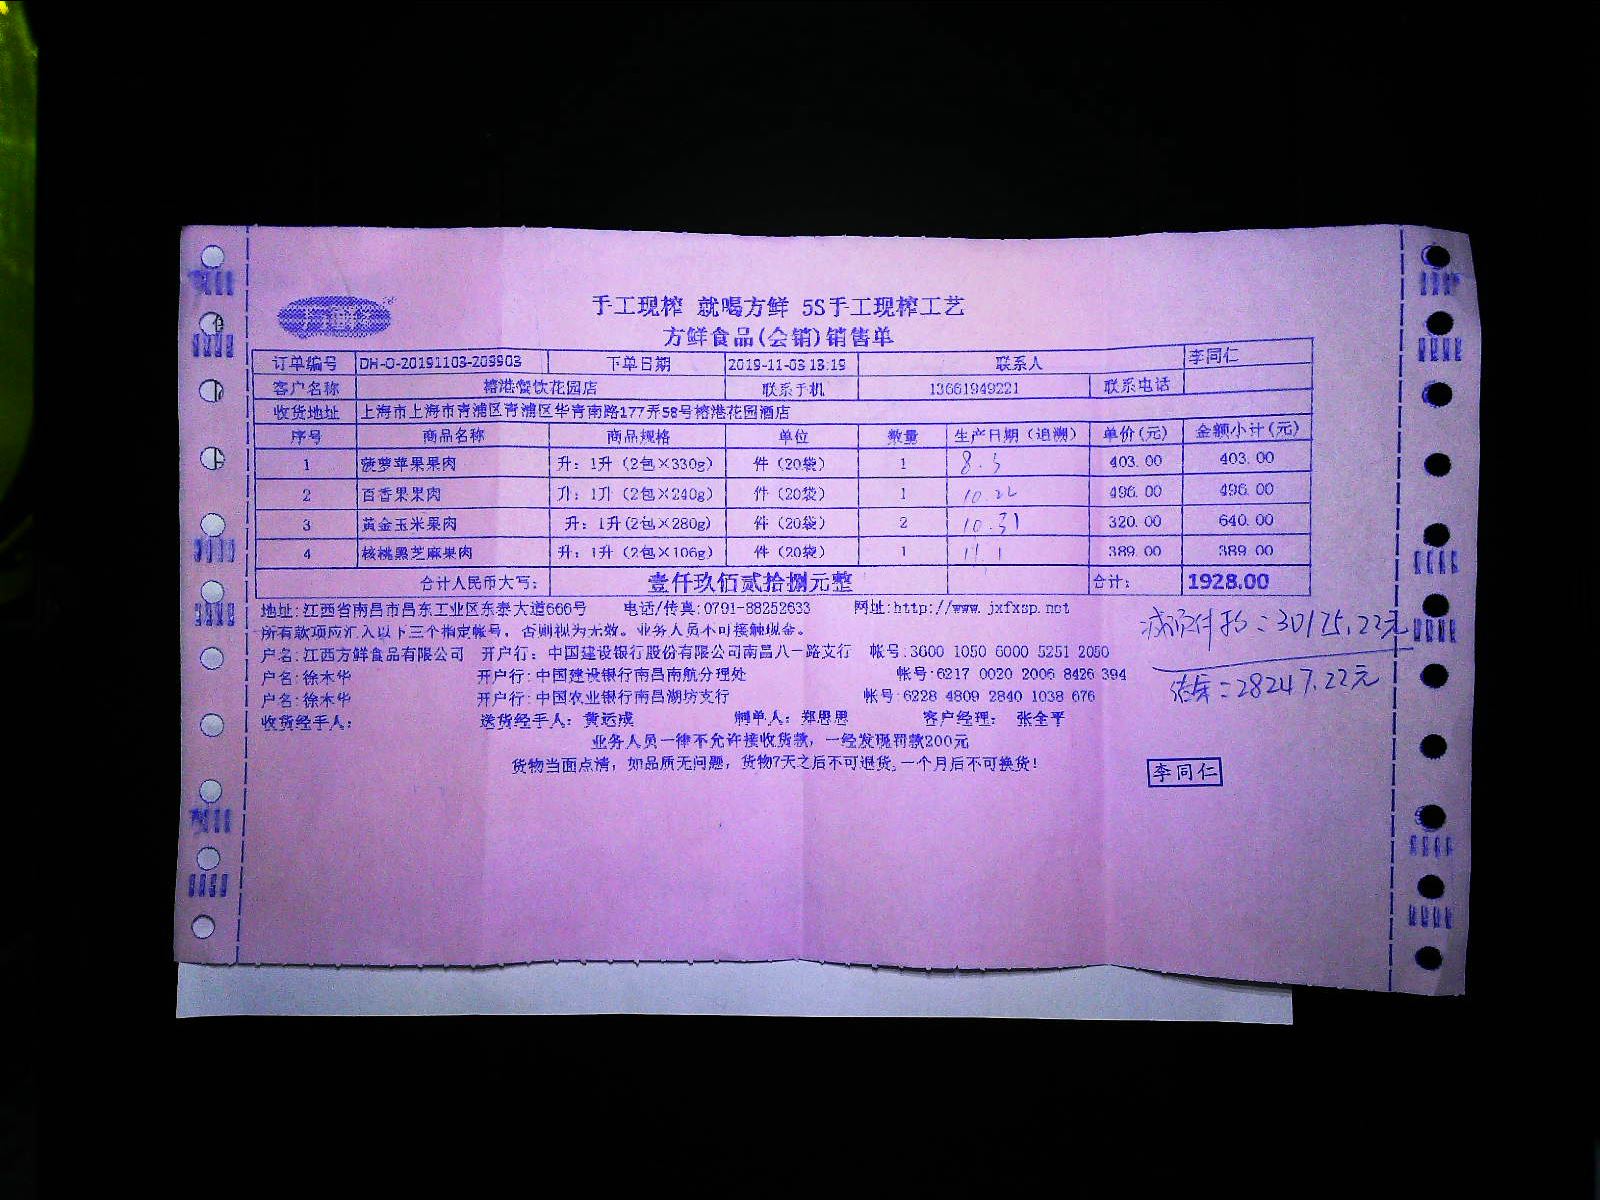 手工现榨 就喝方鲜 5S手工现榨工艺
方鲜食品(会销)销售单
订单编号 DH-O-20191103-209903 下单日期 2019-11-03 13:19 联系人 李同仁
客户名称 榕港餐饮花园店 联系手机 13661949221 联系电话
收货地址 上海市上海市青浦区青浦区华青南路177弄58号榕港花园酒店
序号 商品名称 商品规格 单位 数量 生产日期（追溯） 单价(元) 金额小计(元)
1 菠萝苹果果肉 升：1升（2包×330g） 件（20袋） 1 8.5 403.00 403.00
2 百香果果肉 升：1升（2包×240g） 件（20袋） 1 10.22 496.00 496.00
3 黄金玉米果肉 升：1升(2包×280g) 件（20袋） 2 10.31 320.00 640.00
4 核桃黑芝麻果肉 升：1升（2包×106g） 件（20袋） 1 11.1 389.00 389.00
合计人民币大写： 壹仟玖佰贰拾捌元整 合计： 1928.00
地址:江西省南昌市昌东工业区东泰大道666号 电话/传真:0791-88252633 网址:http://www.jxfxsp.net
所有款项应汇入以下三个指定帐号，否则视为无效。业务人员不可接触现金。
户名:江西方鲜食品有限公司 开户行：中国建设银行股份有限公司南昌八一路支行 帐号:3600 1050 6000 5251 2050
户名:徐木华 开户行:中国建设银行南昌南航分理处 帐号:6217 0020 2006 8426 394
户名:徐木华 开户行:中国农业银行南昌湖坊支行 帐号:6228 4809 2840 1038 676
收货经手人： 送货经手人：黄运成 制单人：郑思思 客户经理： 张全平
业务人员一律不允许接收货款，一经发现罚款200元
货物当面点清，如品质无问题，货物7天之后不可退货,一个月后不可换货！
=30175.22元
=28247.22元
李同仁